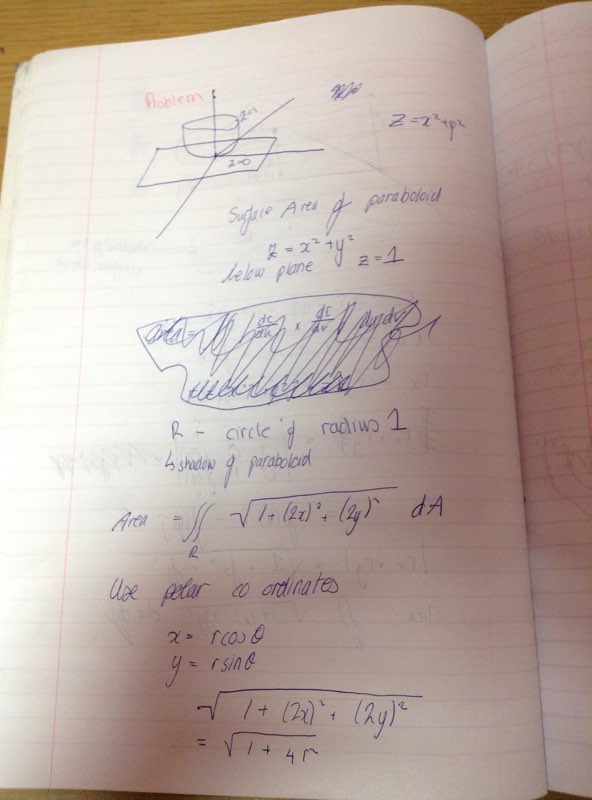 Problem
z=1
z=0
z = x² + y²
Surface Area of paraboloid
z = x² + y²
below plane z = 1
area = dr/du × dr/dv du dv
R - circle of radius 1
↳ shadow of paraboloid
Area = ∬_R √(1 + (2x)² + (2y)²) dA
Use polar co ordinates
x = rcosθ
y = rsinθ
√(1 + (2x)² + (2y)²)
= √(1 + 4r²)